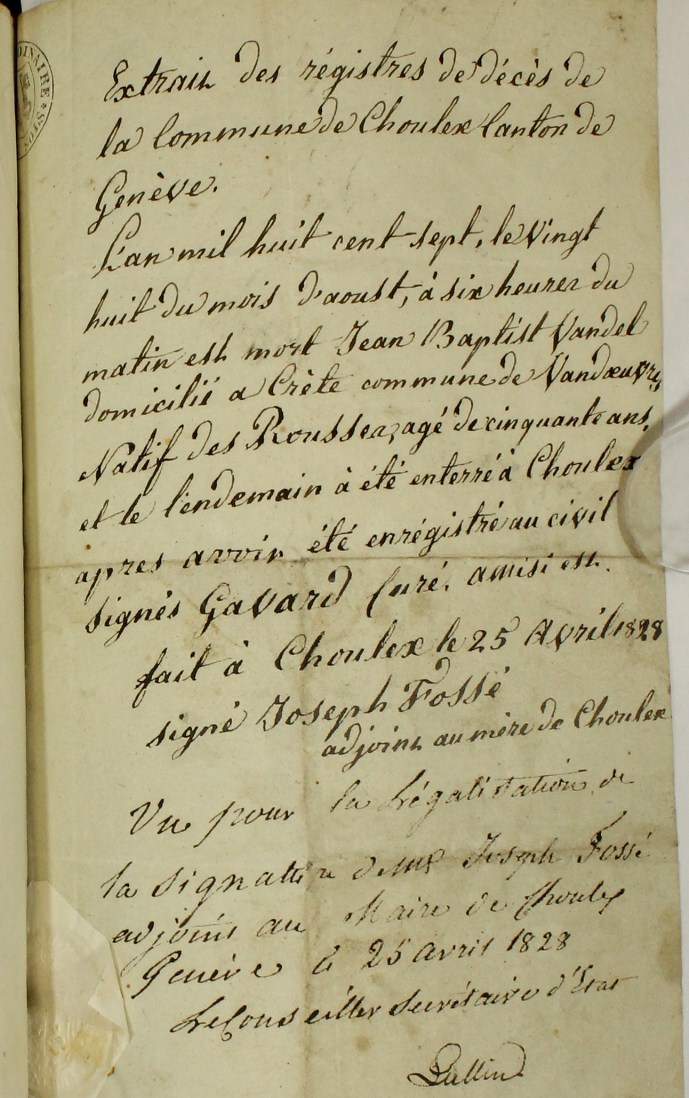 Extrait des régistres de décès de
la Commune de Choulex Canton de
Genève.
L'an mil huit cent sept, le vingt
huit du mois d'aoust, à six heures du
matin est mort Jean Baptist Vandel
domicilié a Crète commune de Vandœuvres
Natif des Rousses, agé de cinquante ans,
et le l'endemain à été enterré à Choulex
apres avoir été enrégistré au civil
signés Gavard Curé. ainsi est.
fait à Choulex le 25 Avril 1828
signé Joseph Fossé
adjoint au mère de Choulex
Vu pour la Légalisation de
la signature de Joseph Fossé
adjoint au Maire de Choulex
Genève le 25 Avril 1828
Le Conseiller Secrétaire d'Etat
Lullin
DINAIRE